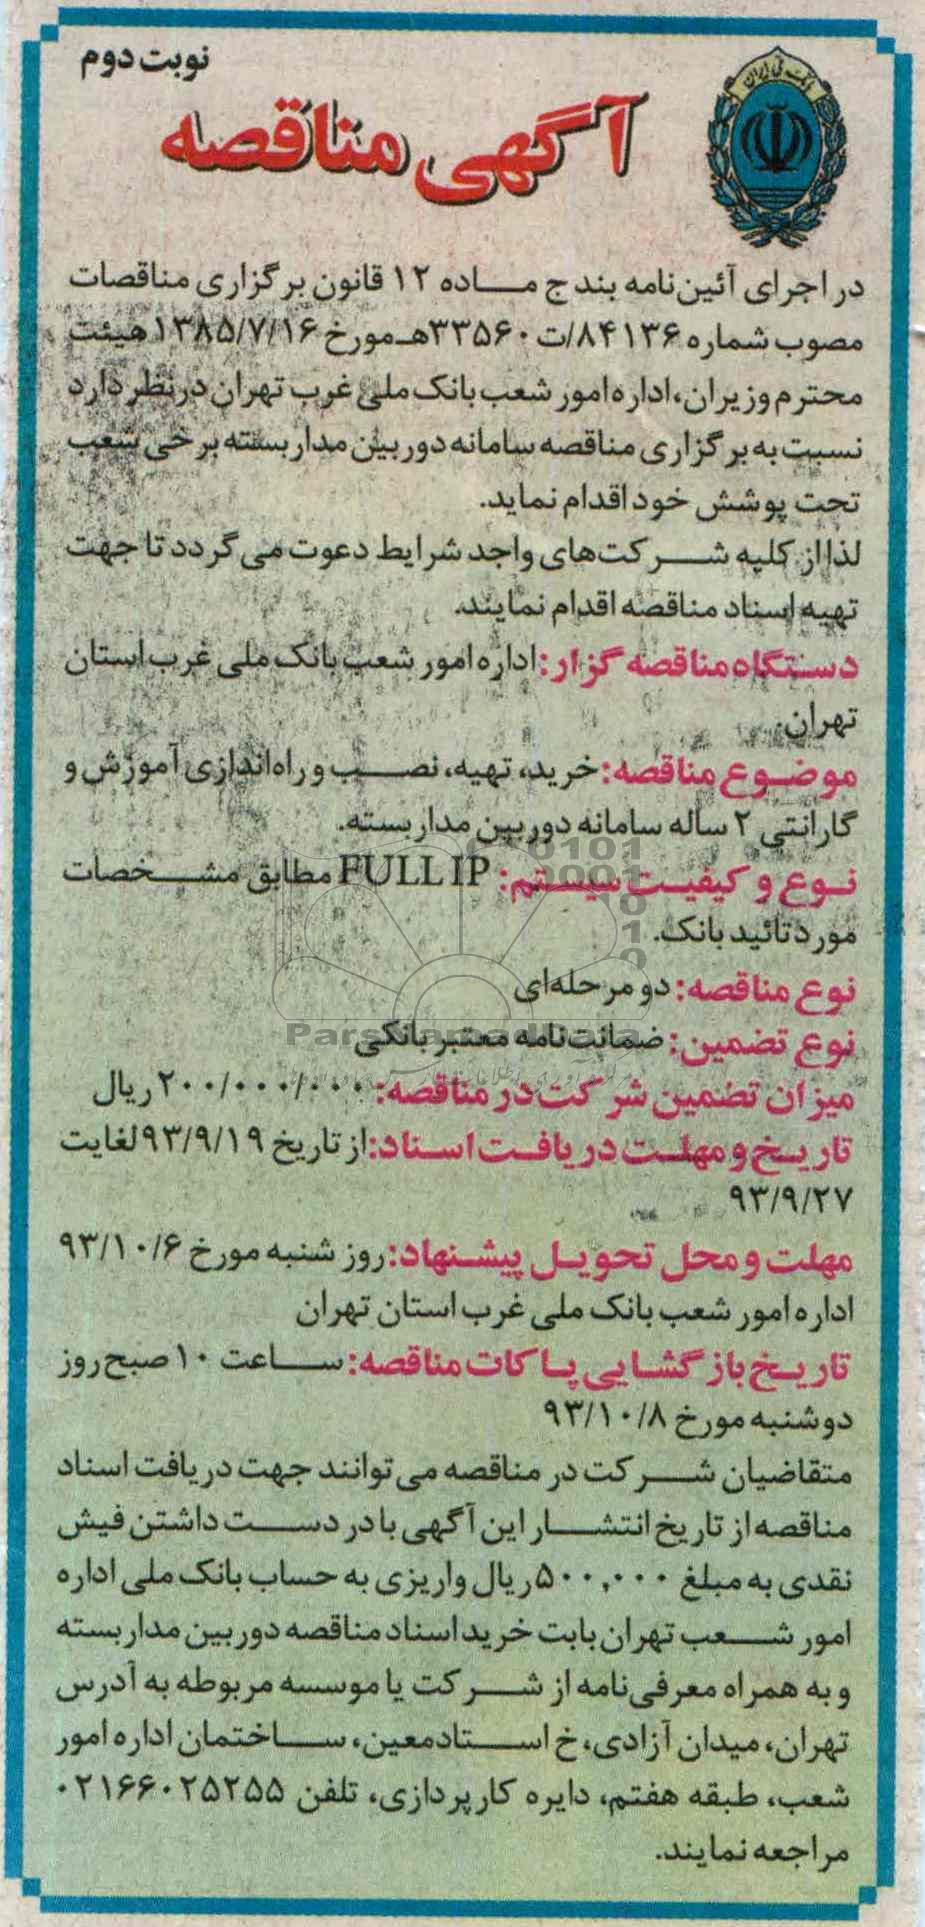 نوبت دوم
بانک ملی ایران
آگهی مناقصه
در اجرای آئین‌نامه بند ج مــاده ۱۲ قانون برگزاری مناقصات
مصوب شماره ۸۴۱۳۶/ت ۳۳۵۶۰هـ مورخ ۱۳۸۵/۷/۱۶ هیئت
محترم وزیران، اداره امور شعب بانک ملی غرب تهران درنظر دارد
نسبت به برگزاری مناقصه سامانه دوربین مداربسته برخی شعب
تحت پوشش خود اقدام نماید.
لذا از کلیه شــرکت‌های واجد شرایط دعوت می‌گردد تا جهت
تهیه اسناد مناقصه اقدام نمایند.
دستگاه مناقصه گزار: اداره امور شعب بانک ملی غرب استان
تهران.
موضوع مناقصه: خرید، تهیه، نصــب و راه‌اندازی آموزش و
گارانتی ۲ ساله سامانه دوربین مداربسته.
نوع و کیفیت سیستم: FULL IP مطابق مشــخصات
مورد تائید بانک.
نوع مناقصه: دو مرحله‌ای
ParsNamadData
نوع تضمین: ضمانت‌نامه معتبر بانکی
میزان تضمین شرکت در مناقصه: ۲۰۰/۰۰۰/۰۰۰ ریال
تاریخ و مهلت دریافت اسناد: از تاریخ ۹۳/۹/۱۹ لغایت
۹۳/۹/۲۷
مهلت و محل تحویل پیشنهاد: روز شنبه مورخ ۹۳/۱۰/۶
اداره امور شعب بانک ملی غرب استان تهران
تاریخ بازگشایی پاکات مناقصه: ســاعت ۱۰ صبح روز
دوشنبه مورخ ۹۳/۱۰/۸
متقاضیان شــرکت در مناقصه می‌توانند جهت دریافت اسناد
مناقصه از تاریخ انتشــار این آگهی با در دســت داشتن فیش
نقدی به مبلغ ۵۰۰,۰۰۰ ریال واریزی به حساب بانک ملی اداره
امور شــعب تهران بابت خرید اسناد مناقصه دوربین مداربسته
و به همراه معرفی‌نامه از شــرکت یا موسسه مربوطه به آدرس
تهران، میدان آزادی، خ اســتاد معین، ســاختمان اداره امور
شعب، طبقه هفتم، دایره کارپردازی، تلفن ۰۲۱۶۶۰۲۵۲۵۵
مراجعه نمایند.